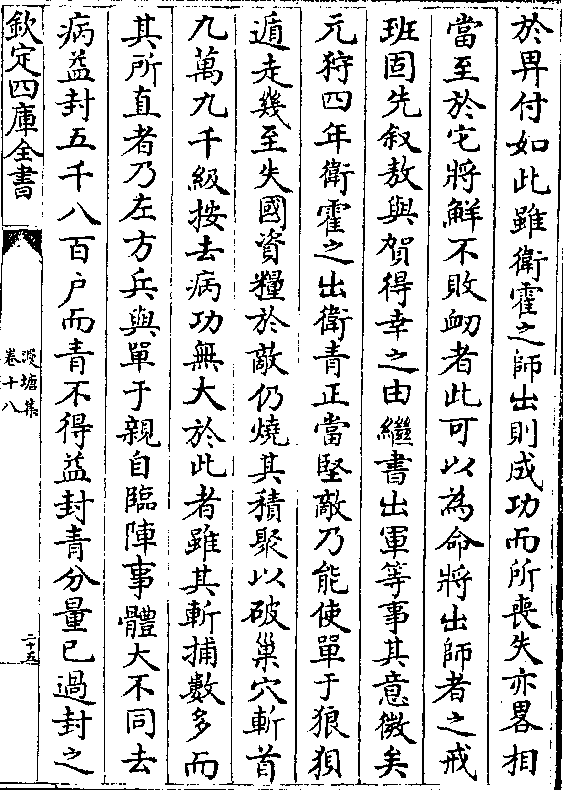 於畀付如此雖衛霍之師出則成功而所喪失亦畧相
當至於它將鮮不敗衂者此可以為命將出師者之戒
班固先叙敖與賀得幸之由繼書出軍等事其意微矣
元狩四年衛霍之出衛青正當堅敵乃能使單于狼狽
遁走幾至失國資糧於敵仍燒其積聚以破巢穴斬首
九萬九千級按去病功無大於此者雖其斬捕數多而
其所直者乃左方兵與單于親自臨陣事體大不同去
病益封五千八百户而青不得益封青分量已過封之
欽定四庫全書
漫塘集
卷十八
二十五